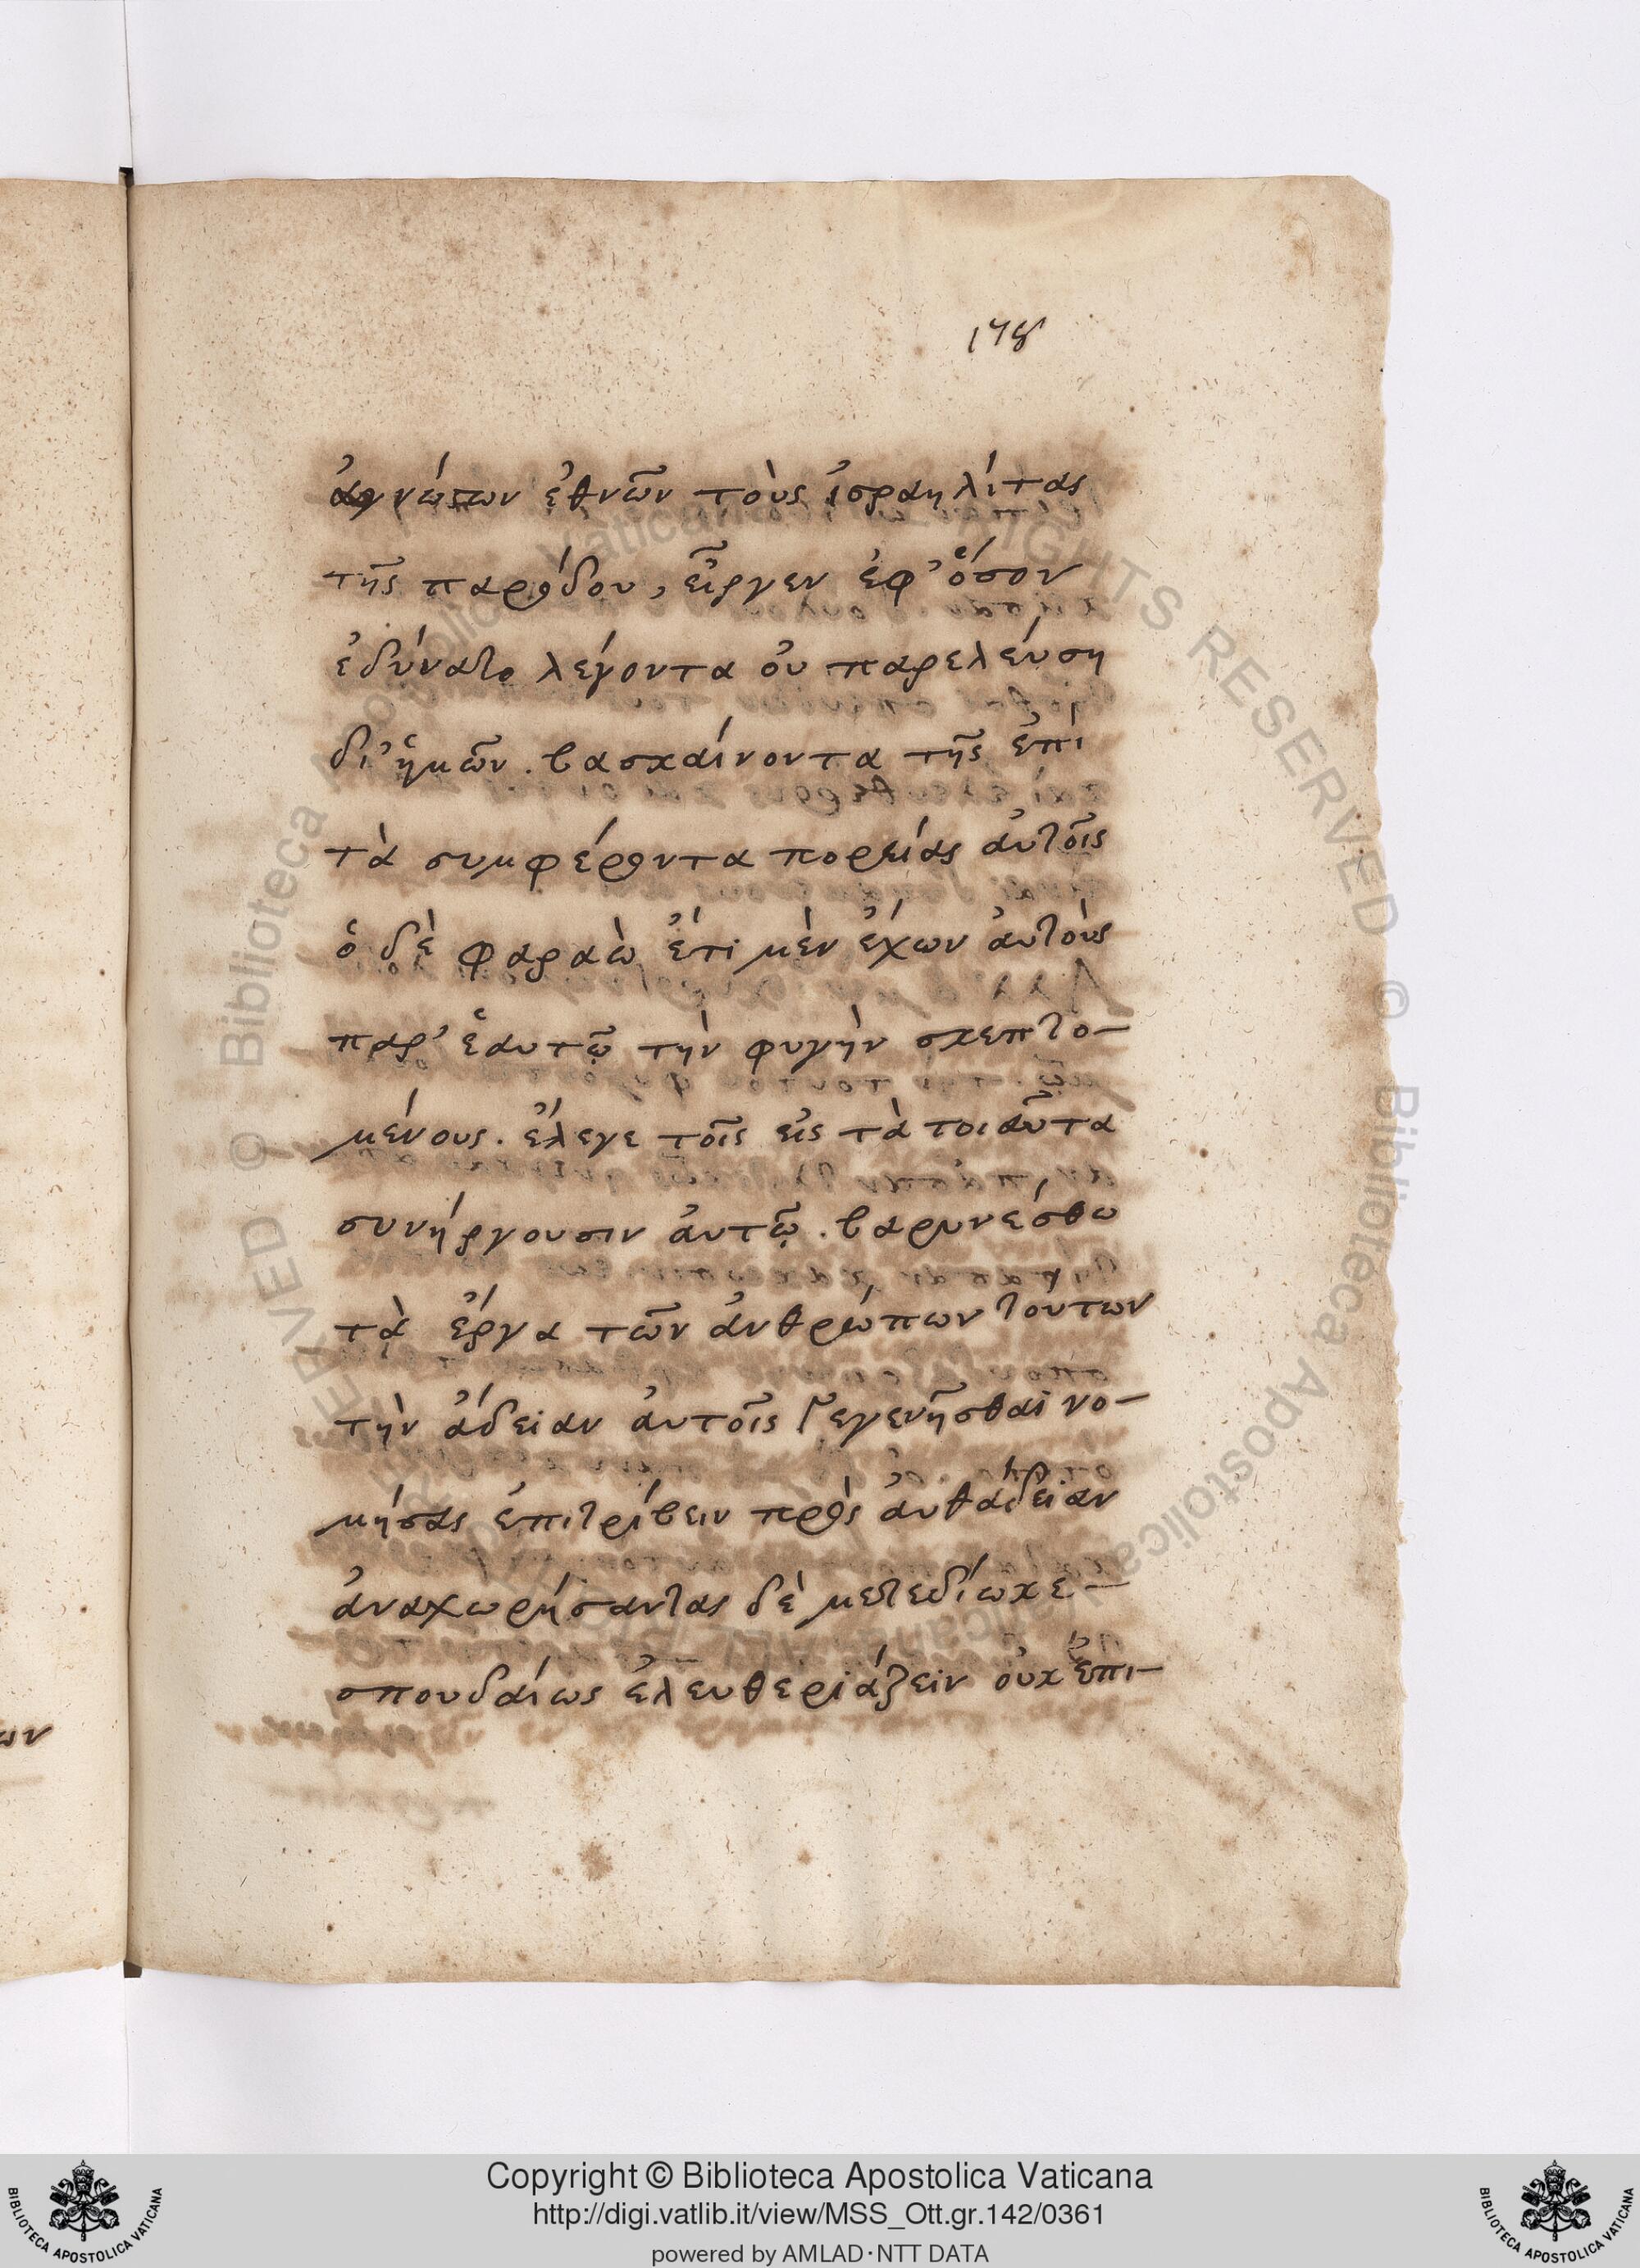 178
ἀγνώστων ἐθνῶν τοὺς ἰσραηλίτας
τῆς παρόδου, εἶργεν ἐφ' ὅσον
ἐδύνατο λέγοντα ὀυ παρελέυση
δι' ἡμῶν. βασκαίνοντα τῆς ἐπὶ
τὰ συμφέροντα πορείας ἀυτοῖς
ὁ δὲ φαραὼ ἔτι μὲν ἔχων ἀυτοὺς
παρ' ἑαυτῷ τὴν φυγὴν σκεπτο-
μένους. ἔλεγε τοῖς εἰς τὰ τοιαῦτα
συνήργουσιν ἀυτῷ. βαρυνέσθω
τὰ ἔργα τῶν ἀνθρώπων τούτων
τὴν ἄδειαν ἀυτοῖς γεγενῆσθαι νο-
μήσας ἐπιτρίβειν πρὸς ἀυθάδειαν
ἀναχωρήσαντας δὲ μετεδίωκε-
σπουδαίως ἐλευθεριάζειν ὀυκ ἐπι-
ων
Copyright © Biblioteca Apostolica Vaticana
http://digi.vatlib.it/view/MSS_Ott.gr.142/0361
powered by AMLAD·NTT DATA
BIBLIOTECA APOSTOLICA VATICANA
BIBLIOTECA APOSTOLICA VATICANA